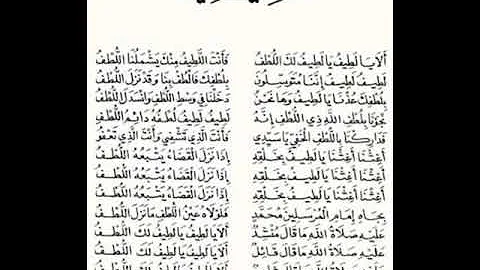 أَلَا يَا لَطِيفُ يَا لَطِيفُ لَكَ اللُّطْفُ فَأَنْتَ اللَّطِيفُ مِنْكَ يَشْمَلُنَا اللُّطْفُ
لَطِيفُ لَطِيفُ إِنَّنَا مُتَوَسِّلُونَ بِلُطْفِكَ فَالْطُفْ بِنَا وَقَدْ نَزَلَ اللُّطْفُ
بِلُطْفِكَ عُذْنَا يَا لَطِيفُ وَهَا نَحْنُ دَخَلْنَا فِي وَسْطِ اللُّطْفِ وَانْسَدَلَ اللُّطْفُ
نَجَوْنَا بِلُطْفِ اللهِ ذِي اللُّطْفِ إِنَّهُ لَطِيفٌ لَطِيفٌ لُطْفُهُ دَائِمُ اللُّطْفُ
فَدَارِكْنَا بِاللُّطْفِ الْخَفِيِّ يَا سَيِّدِي فَأَنْتَ الَّذِي تَشْفِي وَأَنْتَ الَّذِي تَعْفُو
أَغِثْنَا أَغِثْنَا يَا لَطِيفُ بِخَلْقِهِ إِذَا نَزَلَ الْقَضَاءُ يَتْبَعُهُ اللُّطْفُ
أَغِثْنَا أَغِثْنَا يَا لَطِيفُ بِخَلْقِهِ إِذَا نَزَلَ الْقَضَاءُ يَتْبَعُهُ اللُّطْفُ
أَغِثْنَا أَغِثْنَا يَا لَطِيفُ بِخَلْقِهِ إِذَا نَزَلَ الْقَضَاءُ يَتْبَعُهُ اللُّطْفُ
بِجَاهِ إِمَامِ الْمُرْسَلِينَ مُحَمَّدٍ فَلَوْلَاهُ عَيْنُ اللُّطْفِ مَا نَزَلَ اللُّطْفُ
عَلَيْهِ صَلَاةُ اللهِ مَا قَالَ مُنْشِدٌ أَلَا يَا لَطِيفُ يَا لَطِيفُ لَكَ اللُّطْفُ
عَلَيْهِ صَلَاةُ اللهِ مَا قَالَ قَائِلٌ أَلَا يَا لَطِيفُ يَا لَطِيفُ لَكَ اللُّطْفُ